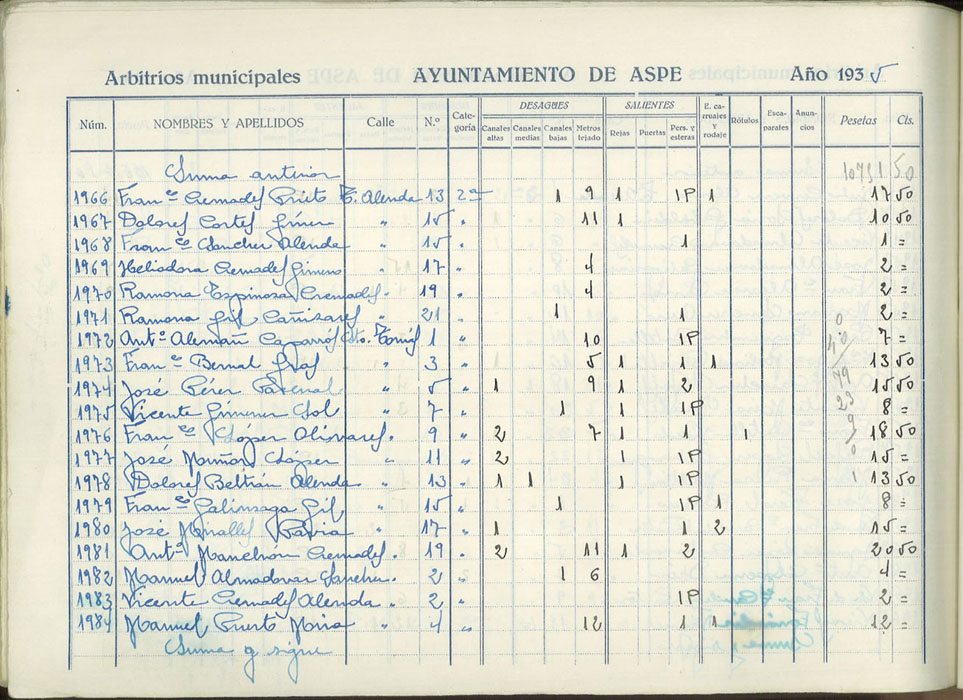 Arbitrios municipales AYUNTAMIENTO DE ASPE Año 1935
Núm. NOMBRES Y APELLIDOS Calle N.º Categoría DESAGÜES SALIENTES E. carruajes y rodaje Rótulos Escaparates Anuncios Pesetas Cts.
Canales altas Canales medias Canales bajas Metros triado Rejas Puertas Pers. y esteras
Suma anterior 10731 50
1966 Fran.co Cremades Prieto T. Alenda 13 2ª 1 9 1 1P 1 17 50
1967 Dolores Cortes Giner " 15 " 11 1 10 50
1968 Fran.co Sanchez Alenda " 15 " 1 1 =
1969 Heliodora Cremades Gimeno " 17 " 4 2 =
1970 Ramona Espinosa Cremades " 19 " 4 2 =
1971 Ramona Gil Cañizares " 21 " 1 1 2 =
1972 Ant.º Alemañ Caparrós 1 " 10 1P 7 =
1973 Fran.co Bernal " 3 " 5 1 1 1 13 50
1974 José Pérez Pastenal " 5 " 1 9 1 2 15 50
1975 Vicente Gimenez Sol " 7 " 1 1 1P 8 =
1976 Fran.co López Olivares " 9 " 2 7 1 1 1 18 50
1977 José Muñoz López " 11 " 2 1 1P 15 =
1978 Dolores Beltrán Alenda " 13 " 1 1 1 1P 13 50
1979 Fran.co Galinsoga Gil " 15 " 1 1P 1 8 =
1980 José Miralles Pavia " 17 " 1 1 2 15 =
1981 Ant.º Manchón Cremades " 19 " 2 11 1 2 20 50
1982 Manuel Almodovar Sanchez " 2 " 1 6 4 =
1983 Vicente Cremades Alenda " 2 " 1P 2 =
1984 Manuel Puerto Mira " 4 " 12 1 1 12 =
Suma y sigue